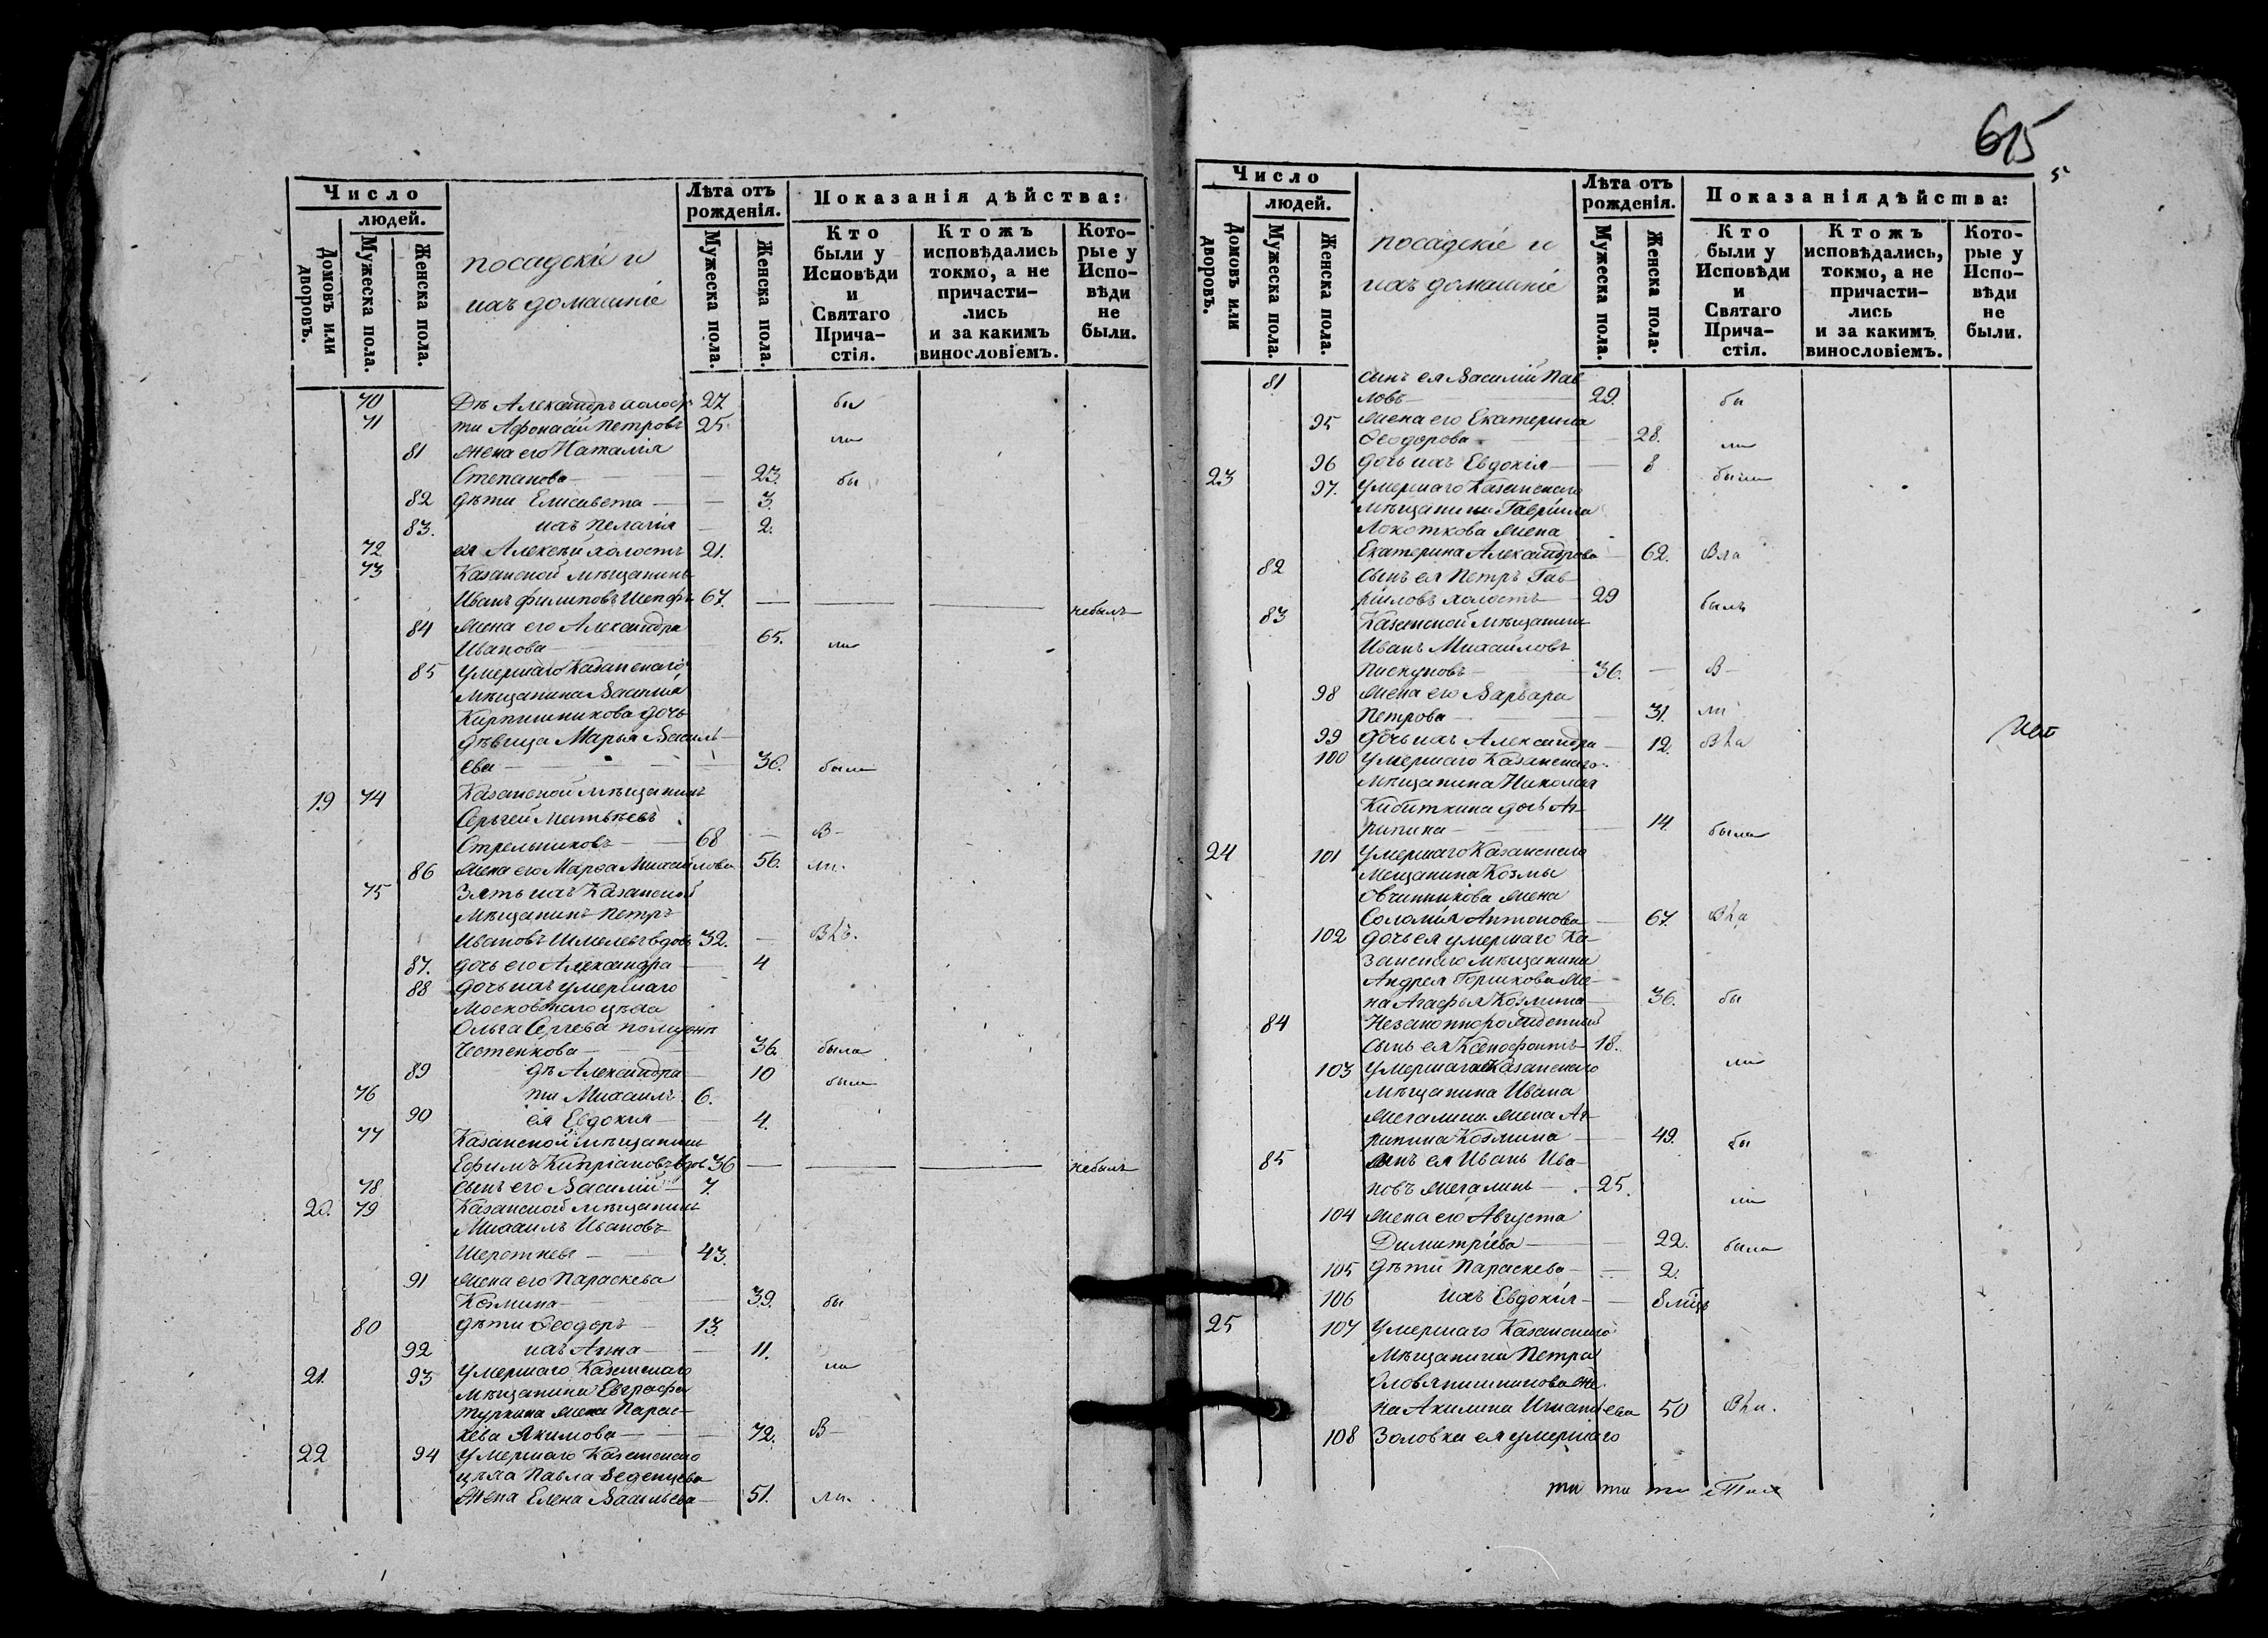 615
5
Число
людей.
Домовъ или дворовъ.
Мужеска пола.
Женска пола.
посадскіе и
ихъ домашніе
Лѣта отъ рожденія.
Мужеска пола.
Женска пола.
Показанія дѣйства:
Кто были у Исповѣди и Святаго Прича-стія.
Ктожъ исповѣдались токмо, а не причасти-лись и за какимъ винословіемъ.
Кото-рые у Испо-вѣди не были.
70 Дѣ Александръ холост 27 бы
71 ти Афонасій Петровъ 25 ли
81 жена его Наталія
Степанова 23. бы
82 дѣти Елисавета 3.
83. ихъ Пелагія 2.
72 ея Алексѣй холостъ 21.
73 Казанской мѣщанинъ
Иванъ Филиповъ 67. небылъ
84 жена его Александра
Иванова 65. ли
85 Умершаго Казанскаго
мѣщанина Василія
Кирпишникова дочь
дѣвица Марья Василь-
ева 30. была
19 74 Казанской мѣщанинъ
Сергей Матвѣевъ
Стрельниковъ 68 В
86 жена его Марѳа Михайлова 56. ли.
75 Зять ихъ Казанской
мѣщанинъ Петръ
Ивановъ Шмелевъ вдовъ 32.
87. дочь его Александра 4
88 дочь ихъ умершаго
Московскаго цѣха
Ольга Сергева
36. была
89 дѣ Александра 10 были
76 ти Михаилъ 6.
90 ея Евдокия 4.
77 Казанской мѣщанинъ
Ефимъ Кипріановъ вдов 36 небылъ
78 сынъ его Василій 7.
20. 79 Казанской мѣщанинъ
Михаилъ Ивановъ
43.
91 жена его Параскева
Козмина 39. бы
80 дѣти Ѳеодоръ 13.
92 ихъ Анна 11.
21. 93 Умершаго Казанскаго ли
мѣщанина Евграфа
Туркина жена Парас-
кева Якимова 72. В
22 94 Умершаго Казанскаго
цѣха Павла Веденцева
жена Елена Васильева 51. ли.
Число
людей.
Домовъ или дворовъ.
Мужеска пола.
Женска пола.
посадскіе и
ихъ домашніе
Лѣта отъ рожденія.
Мужеска пола.
Женска пола.
Показанія дѣйства:
Кто были у Исповѣди и Святаго Прича-стія.
Ктожъ исповѣдались, токмо, а не причасти-лись и за какимъ винословіемъ.
Кото-рые у Испо-вѣди не были.
81 сынъ ея Василій Пав-
ловъ 29. бы
95 жена его Екатерина
Ѳеодорова 28. ли
96 дочь ихъ Евдокія 8
23 97. умершаго Казанскаго были
мѣщанина Гавріила
Локоткова жена
Екатерина Александрова 62.
82 сынъ ея Петръ Гав-
риловъ холостъ 29 былъ
83 Казанской мѣщанинъ
Иванъ Михайловъ
Пискуновъ 36. В
98 жена его Варвара
Петрова 31. ли
99 дочь ихъ Александра 12.
100 Умершаго Казанскаго
мѣщанина Николая
Кибиткина дочь Аг-
рипина 14. была
24 101 Умершаго Казанскаго
мещанина Козмы
Овчинникова жена
Соломія Антонова 67.
102 дочь ея умершаго Ка-
занскаго мѣщанина
Андрея Горшкова же-
на Агафья Козмина 36. бы
84 Незаконнорожденный
сынъ ея Ксенофонтъ 18.
103 Умершаго Казанскаго ли
мѣщанина Ивана
Мегалина жена Аг-
рипина Козмина 49. бы
85 сынъ ея Иванъ Ива-
новъ Мегалинъ 25. ли
104 жена его Августа
Димитріева 22. была
105 дѣти Параскева 2.
106 ихъ Евдокія 8 мцъ
25 107 Умершаго Казанскаго
мѣщанина Петра
Оловянишникова же-
на Акилина Игнатьева 50
108 Золовка ея умершаго